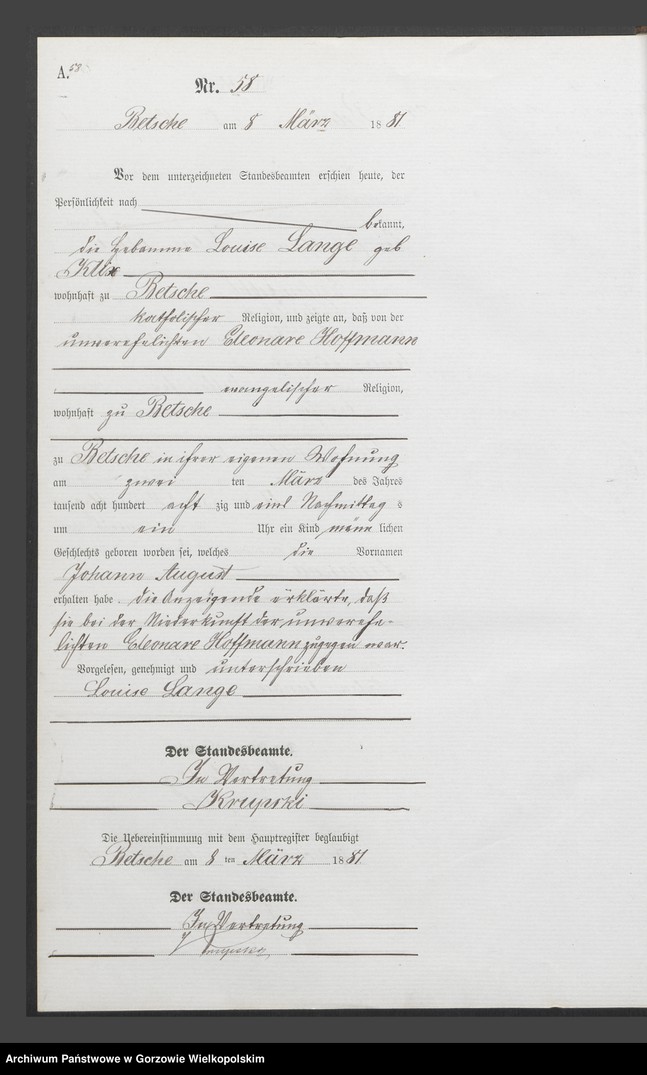 A. 58
Nr. 58
Betsche am 8 März 1881
Vor dem unterzeichneten Standesbeamten erschien heute, der
Persönlichkeit nach
bekannt,
die Hebamme Louise Lange geb
wohnhaft zu Betsche
katholischer Religion, und zeigte an, daß von der
unverehelichten Eleonare Hoffmann
evangelischer Religion,
wohnhaft zu Betsche
zu Betsche in ihrer eigenen Wohnung
am zwei ten März des Jahres
tausend acht hundert acht zig und eins Nachmittag s
um ein Uhr ein Kind männ lichen
Geschlechts geboren worden sei, welches die Vornamen
Johann August
erhalten habe. Die Anzeigende erklärte, daß
sie bei der Niederkunft der unverehe-
lichten Eleonare Hoffmann zugegen war.
Vorgelesen, genehmigt und unterschrieben
Louise Lange
Der Standesbeamte.
In Vertretung
Die Uebereinstimmung mit dem Hauptregister beglaubigt
Betsche am 8 ten März 1881
Der Standesbeamte.
In Vertretung
Archiwum Państwowe w Gorzowie Wielkopolskim